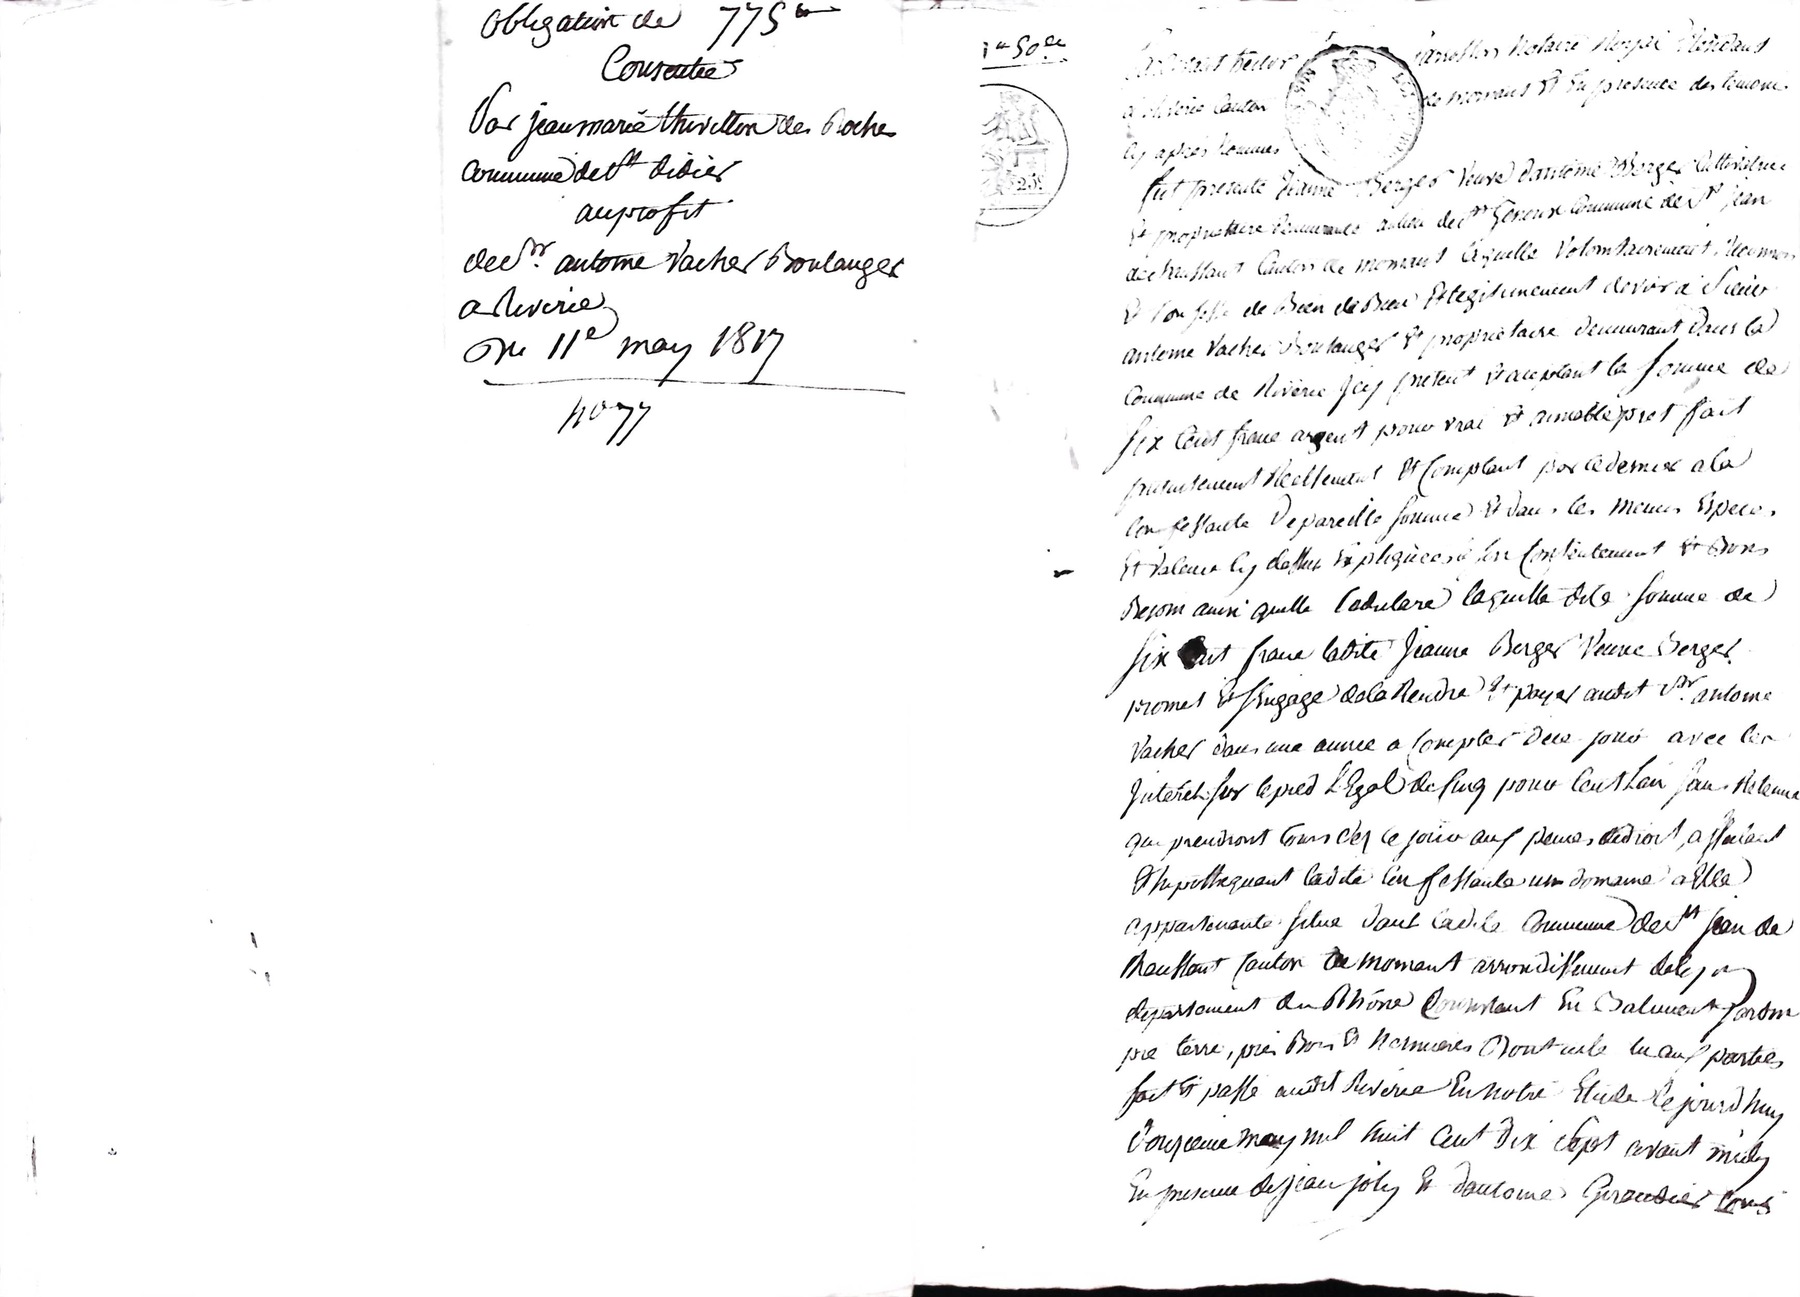 obligation de 775
Consentie
Par jean marie thivillon des Roches
commune de St didier
au profit
de Sr. antoine Vacher Boulanger
a Riverie
Du 11e may 1817
no 77
50
25
notaire Royal Résidant
a Riverie Canton de mornant Et En presence des temoins
Cy apres nommés
fut presente Jeanne Berger Veuve d'antoine Berger Cultivatrice
Et proprietaire demeurante au lieu de Commune de St jean
de chaussant Canton de mornant laquelle Volontairement Reconnoit
Et Confesse de Bien de Bien Et legitimement devoir a Sieur
antoine Vacher Boulanger Et proprietaire demeurant dans la
Commune de Riverie Jcy present Et acceptant la Somme de
Six Cent franc argent pour vrai Et aimable pret fait
presentement Reellement Et Comptant par ce dernier a la
Confessante De pareille Somme Et dans les memes Especes
Et Valeur Cy dessus Expliquées a son Consentement Et Bons
Besoin ainsi quelle la declaré laquelle dite Somme de
Six Cent franc ladite Jeanne Berger Veuve Berger
promet Et S'Engage de la Rendre Et payer audit Sr. antoine
Vacher dans une année a Compter de ce jour avec les
Jnterets sur le pied l'Egal de Cinq pour Cent l'an Sans Retenue
qui prendront Cours dez ce jour aux peines de droit, affectant
Et hipothequant ladite Confessante un domaine a Elle
appartenante situé dans ladite Commune de St jean de
Chaussant Canton de mornant arrondissement de Lyon
departement du Rhône Consistant En Batiment Jardin
pré terre, Bois Et dont acte lu aux parties
fait Et passé audit Riverie En notre Etude Ce jourd'huy
onzieme may mil huit Cent Dix Sept avant midy
En presence de jean joly Et d'antoine Giraudier tous